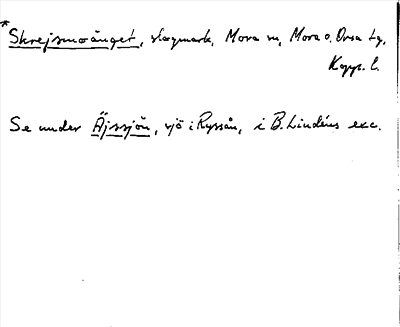 *Skrejsmoänget, slogmark, Mora sn, Mora o. Orsa tg,
Kopp. l.
Se under Äjssjön, sjö i Ryssån, i B. Lindéns exc.